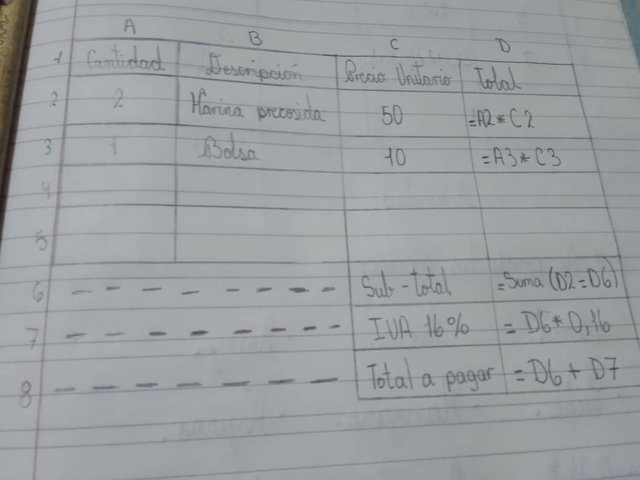 A B C D
1 Cantidad Descripción Precio Unitario Total
2 2 Harina precosida 50 =A2*C2
3 1 Bolsa 10 =A3*C3
4
5
6 Sub-total =Suma(D2=D6)
7 IVA 16% =D6*0,16
8 Total a pagar =D6+D7